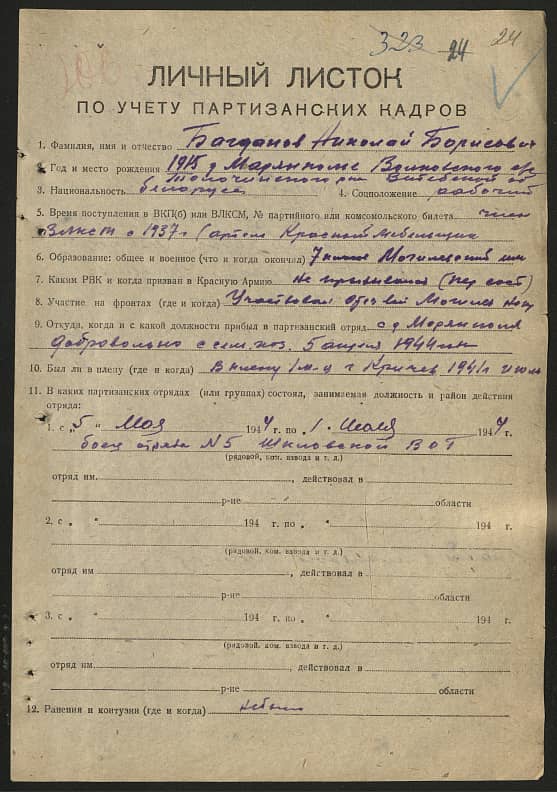 323 24 24
ЛИЧНЫЙ ЛИСТОК
ПО УЧЕТУ ПАРТИЗАНСКИХ КАДРОВ
1. Фамилия, имя и отчество Багданов Николай Борисович
2. Год и место рождения 1915 д Марянполе
Толочинского р-на Витебской об
3. Национальность белорус 4. Соцположение рабочий
5. Время поступления в ВКП(б) или ВЛКСМ, № партийного или комсомольского билета член
ВЛКСМ с 1937 г (артель Красной Мебельщик
6. Образование: общее и военное (что и когда окончил) 7 Могилевский
7. Каким РВК и когда призван в Красную Армию не призывался
8. Участие на фронтах (где и когда) Участвовал Могилев
9. Откуда, когда и с какой должности прибыл в партизанский отряд с д Марянполя
добровольно 5 1944
10. Был ли в плену (где и когда) В плену г Кричев 1941 г июль
11. В каких партизанских отрядах (или группах) состоял, занимаемая должность и район действия
отряда:
1. с „5 “ Мая 1944 г. по 1 · Июля 1944 г.
боец отряда N 5 Шкловской В О Г
(рядовой, ком. взвода и т. д.)
отряд им. , действовал в
р-не области
2. с „ “ 194 г. по „ “ 194 г.
(рядовой, ком. взвода и т. д.)
отряд им , действовал в
р-не области
3. с „ “ 194 г. по „ “ 194 г.
(рядовой, ком. взвода и т. д.)
отряд им , действовал в
р-не области
12. Ранения и контузии (где и когда)